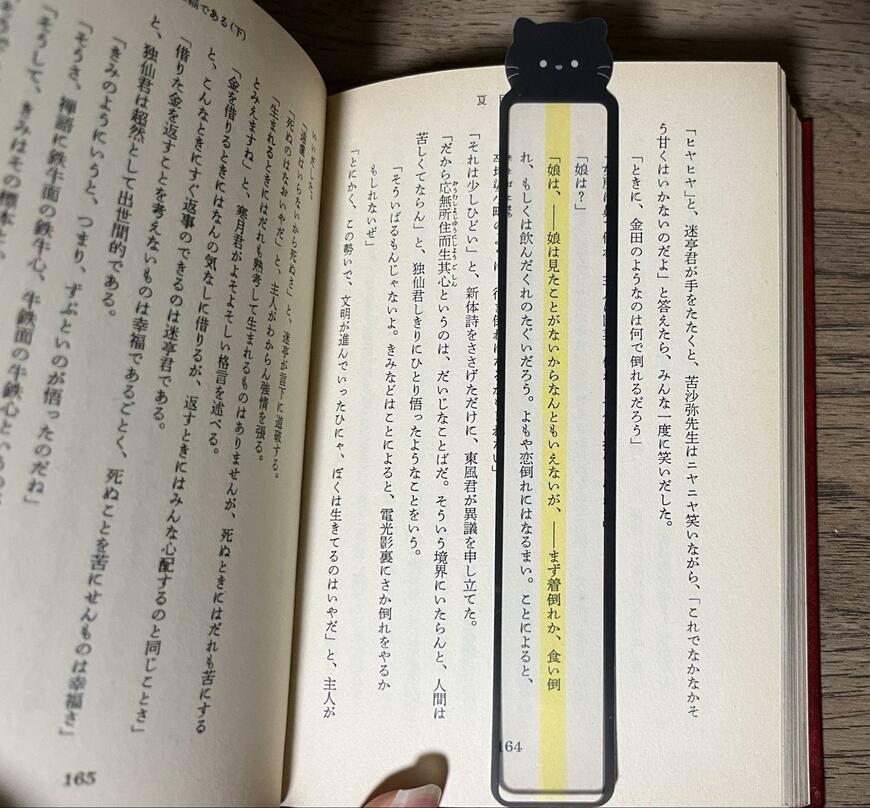 夏
「ヒヤヒヤ」と、迷亭君が手をたたくと、苦沙弥先生はニヤニヤ笑いながら、「これでなかなかそ
う甘くはいかないのだよ」と答えたら、みんな一度に笑いだした。
「ときに、金田のようなのは何で倒れるだろう」
「娘は？」
「娘は、――娘は見たことがないからなんともいえないが、――まず着倒れか、食い倒
れ、もしくは飲んだくれのたぐいだろう。よもや恋倒れにはなるまい。ことによると、
「それは少しひどい」と、新体詩をささげただけに、東風君が異議を申し立てた。
「だから応無所住而生其心というのは、だいじなことばだ。そういう境界にいたらんと、人間は
苦しくてならん」と、独仙君しきりにひとり悟ったようなことをいう。
「そういばるもんじゃないよ。きみなどはことによると、電光影裏にさか倒れをやるか
もしれないぜ」
「とにかく、この勢いで、文明が進んでいったひにゃ、ぼくは生きてるのはいやだ」と、主人が
164
猫である(下)
いいだした。
「遠慮はいらないから死ぬさ」と、迷亭が言下に道破する。
「死ぬのはなおいやだ」と、主人がわからん強情を張る。
「生まれるときにはだれも熟考して生まれるものはありませんが、死ぬときにはだれも苦にする
とみえますね」と、寒月君がよそよそしい格言を述べる。
「金を借りるときにはなんの気なしに借りるが、返すときにはみんな心配するのと同じことさ」
と、こんなときにすぐ返事のできるのは迷亭君である。
「借りた金を返すことを考えないものは幸福であるごとく、死ぬことを苦にせんものは幸福さ」
と、独仙君は超然として出世間的である。
「きみのようにいうと、つまり、ずぶといのが悟ったのだね」
「そうさ、禅語に鉄牛面の鉄牛心、牛鉄面の牛鉄心という
「そうして、きみはその標本と
165